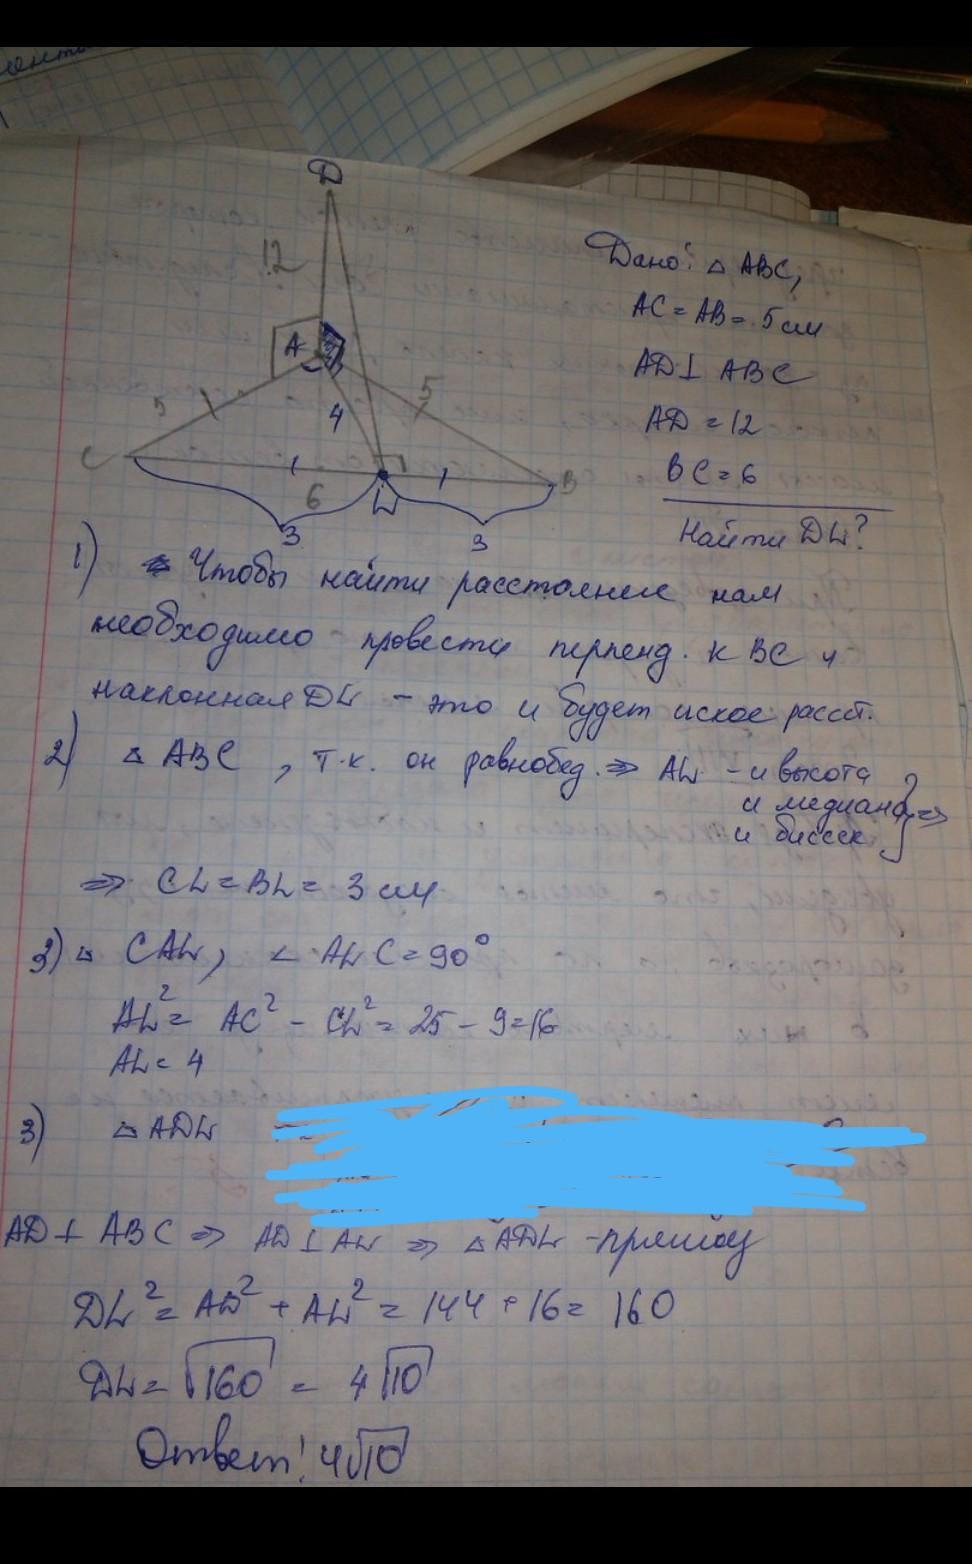 D
12
A
5
5
4
C
B
6
L
3
3
Дано: △ ABC,
AC = AB = 5 см
AD ⊥ ABC
AD = 12
BC = 6
Найти DL?
1) Чтобы найти расстояние нам
необходимо провести перпенд. к BC и
наклонная DL – это и будет иское расст.
2) △ ABC, т.к. он равнобед. ⇒ AL – и высота
и медиана
и биссек } ⇒
⇒ CL = BL = 3 см
3) △ CAL, ∠ ALC = 90°
AL² = AC² - CL² = 25 - 9 = 16
AL = 4
3) △ ADL
AD ⊥ ABC ⇒ AD ⊥ AL ⇒ △ ADL - прямоу
DL² = AD² + AL² = 144 + 16 = 160
DL = √160 = 4√10
Ответ: 4√10